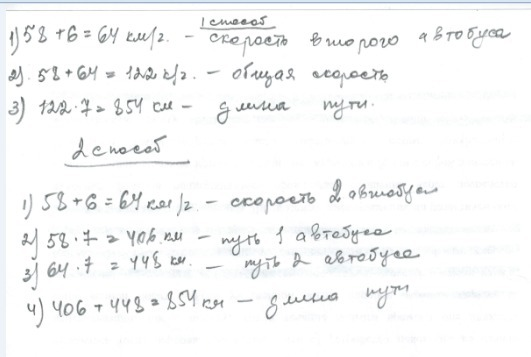 1 способ
1) 58 + 6 = 64 км/г. – скорость второго автобуса
2). 58 + 64 = 122 к/г. – общая скорость
3) 122 · 7 = 854 км – длина пути.
2 способ
1) 58 + 6 = 64 км/г. – скорость 2 автобуса
2) 58 · 7 = 406 км – путь 1 автобуса
3) 64 · 7 = 448 км. – путь 2 автобуса
4) 406 + 448 = 854 км – длина пути